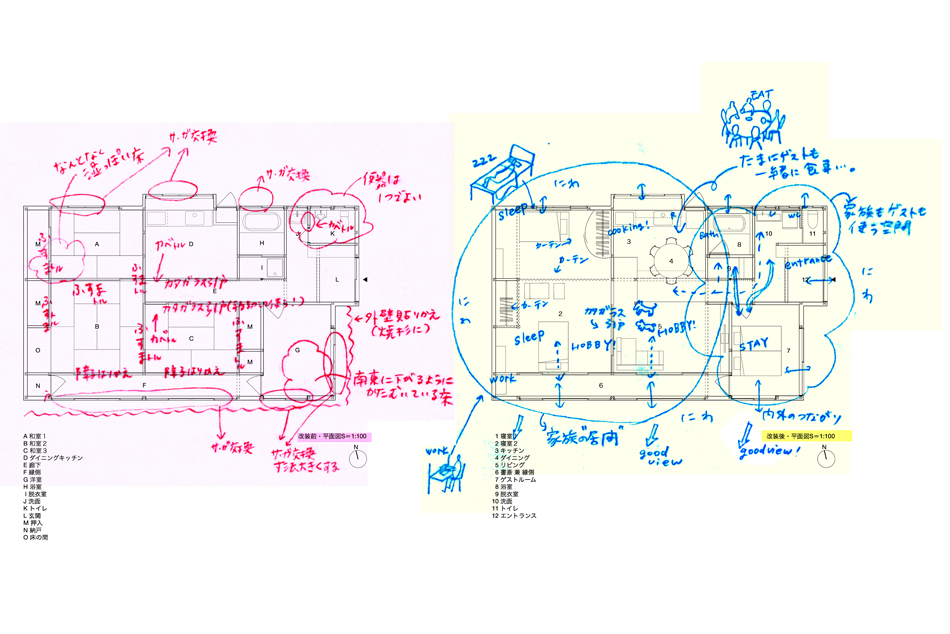 サッシ交換
なんとなく
湿っぽい床
サッシ交換
便器は
1つでよい
カベトル
M
A
D
H
J
K
ふすま
トル
カベトル
I
L
E
カタガラス引戸
ふすま
トル
M
B
C
M
M
カベトル
外壁貼りかえ
(焼杉に)
G
O
障子はりかえ
障子はりかえ
N
F
南東に下がるように
かたむいている床
サッシ交換
サッシ交換
寸法大きくする
改装前・平面図S=1:100
N
A 和室1
B 和室2
C 和室3
D ダイニングキッチン
E 廊下
F 縁側
G 洋室
H 浴室
I 脱衣室
J 洗面
K トイレ
L 玄関
M 押入
N 納戸
O 床の間
EAT
たまにゲストも
一緒に食事…。
zzz
にわ
sleep
cooking!
R
1
3
カーテン
カーテン
4
Bath
8
9
10
WC
11
家族もゲストも
使う空間
entrance
12
にわ
にわ
カーテン
カタガラス
引戸
2
5
sleep
HOBBY!
HOBBY!
STAY
7
work
6
にわ
内外のつながり
家族の"居間"
good
view
good view!
work
改装後・平面図S=1:100
N
1 寝室1
2 寝室2
3 キッチン
4 ダイニング
5 リビング
6 書斎 兼 縁側
7 ゲストルーム
8 浴室
9 脱衣室
10 洗面
11 トイレ
12 エントランス